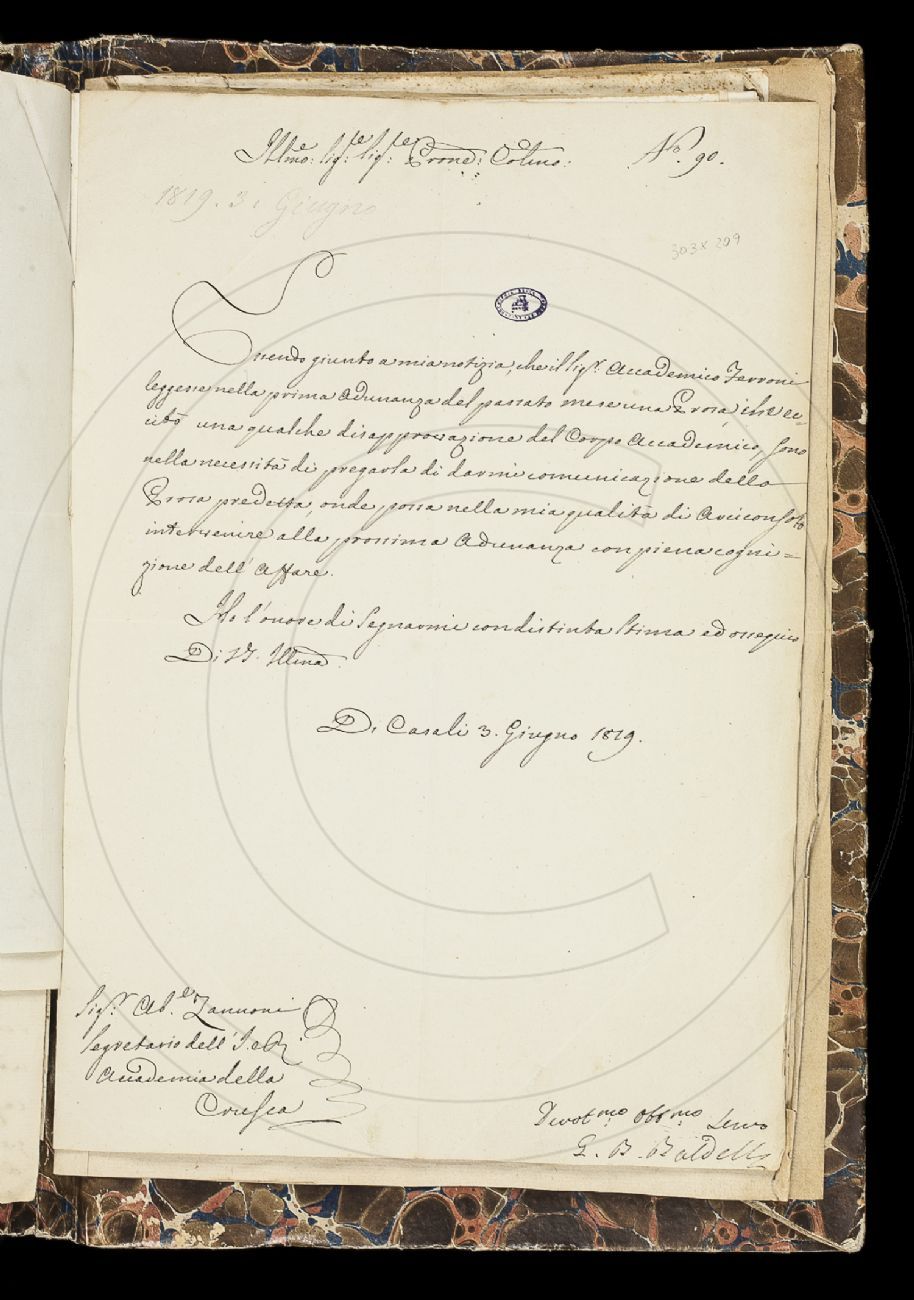 Illmo: Sig:re Sig:re Prone: Colmo: No. 90.
1819. 3. Giugno
303 x 209
Essendo giunto a mia notizia, che il Sigr. Accademico Ferroni
leggesse nella prima Adunanza del passato mese una Prosa, che ec=
citò una qualche disapprovazione del Corpo Accademico, sono
nella necessità di pregarla di darmi comunicazione della
Prosa predetta, onde possa nella mia qualità di Arciconsolo
intervenire alla prossima Adunanza con piena cogni=
zione dell' Affare.
Ho l'onore di segnarmi con distinta stima ed ossequio
Di V.S. Illma
Di Casa li 3. Giugno 1819.
Sig:r Ab:e Zannoni
Segretario dell' I. e R.
Accademia della
Crusca
Devotmo. Obbmo. Servo
G. B. Baldelli